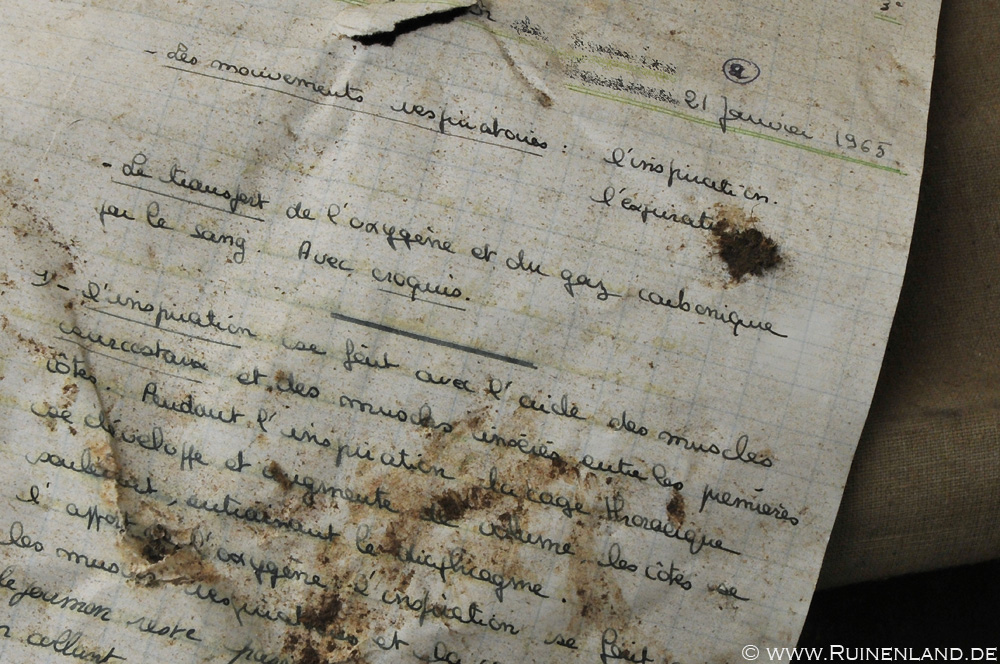 3°
a
21 Janvier 1965
- Les mouvements respiratoires : l'inspiration.
l'expirati
- Le transport de l'oxygène et du gaz carbonique
par le sang. Avec croquis.
1°- l'inspiration se fait avec l'aide des muscles
surcostaux et des muscles insérés entre les premières
côtes. Pendant l'inspiration la cage thoracique
se développe et augmente de volume. les côtes se
soulevant, entrainant le diaphragme.
l'apport de l'oxygène. L'inspiration se fait
les muscles respiratoires et la
le poumon reste
allant
© www.Ruinenland.de